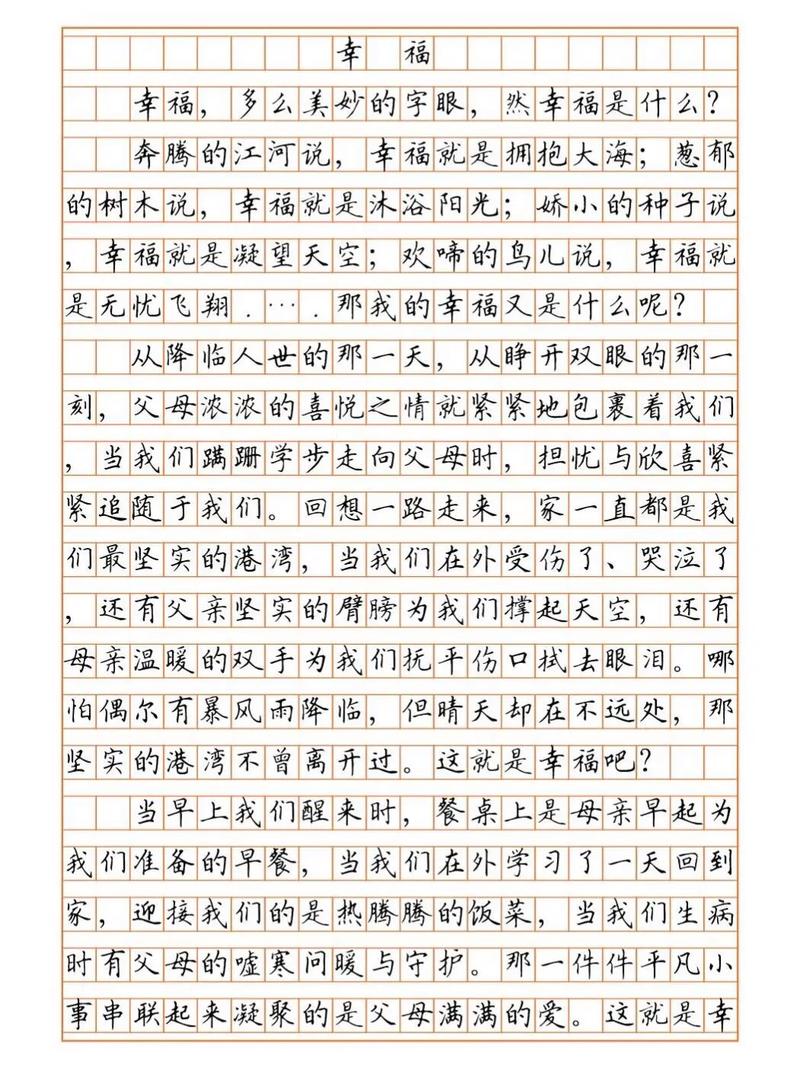 幸 福
幸福，多么美妙的字眼，然幸福是什么？
奔腾的江河说，幸福就是拥抱大海；葱郁
的树木说，幸福就是沐浴阳光；娇小的种子说
，幸福就是凝望天空；欢啼的鸟儿说，幸福就
是无忧飞翔．…．那我的幸福又是什么呢？
从降临人世的那一天，从睁开双眼的那一
刻，父母浓浓的喜悦之情就紧紧地包裹着我们
，当我们蹒跚学步走向父母时，担忧与欣喜紧
紧追随于我们。回想一路走来，家一直都是我
们最坚实的港湾，当我们在外受伤了、哭泣了
，还有父亲坚实的臂膀为我们撑起天空，还有
母亲温暖的双手为我们抚平伤口拭去眼泪。哪
怕偶尔有暴风雨降临，但晴天却在不远处，那
坚实的港湾不曾离开过。这就是幸福吧？
当早上我们醒来时，餐桌上是母亲早起为
我们准备的早餐，当我们在外学习了一天回到
家，迎接我们的是热腾腾的饭菜，当我们生病
时有父母的嘘寒问暖与守护。那一件件平凡小
事串联起来凝聚的是父母满满的爱。这就是幸